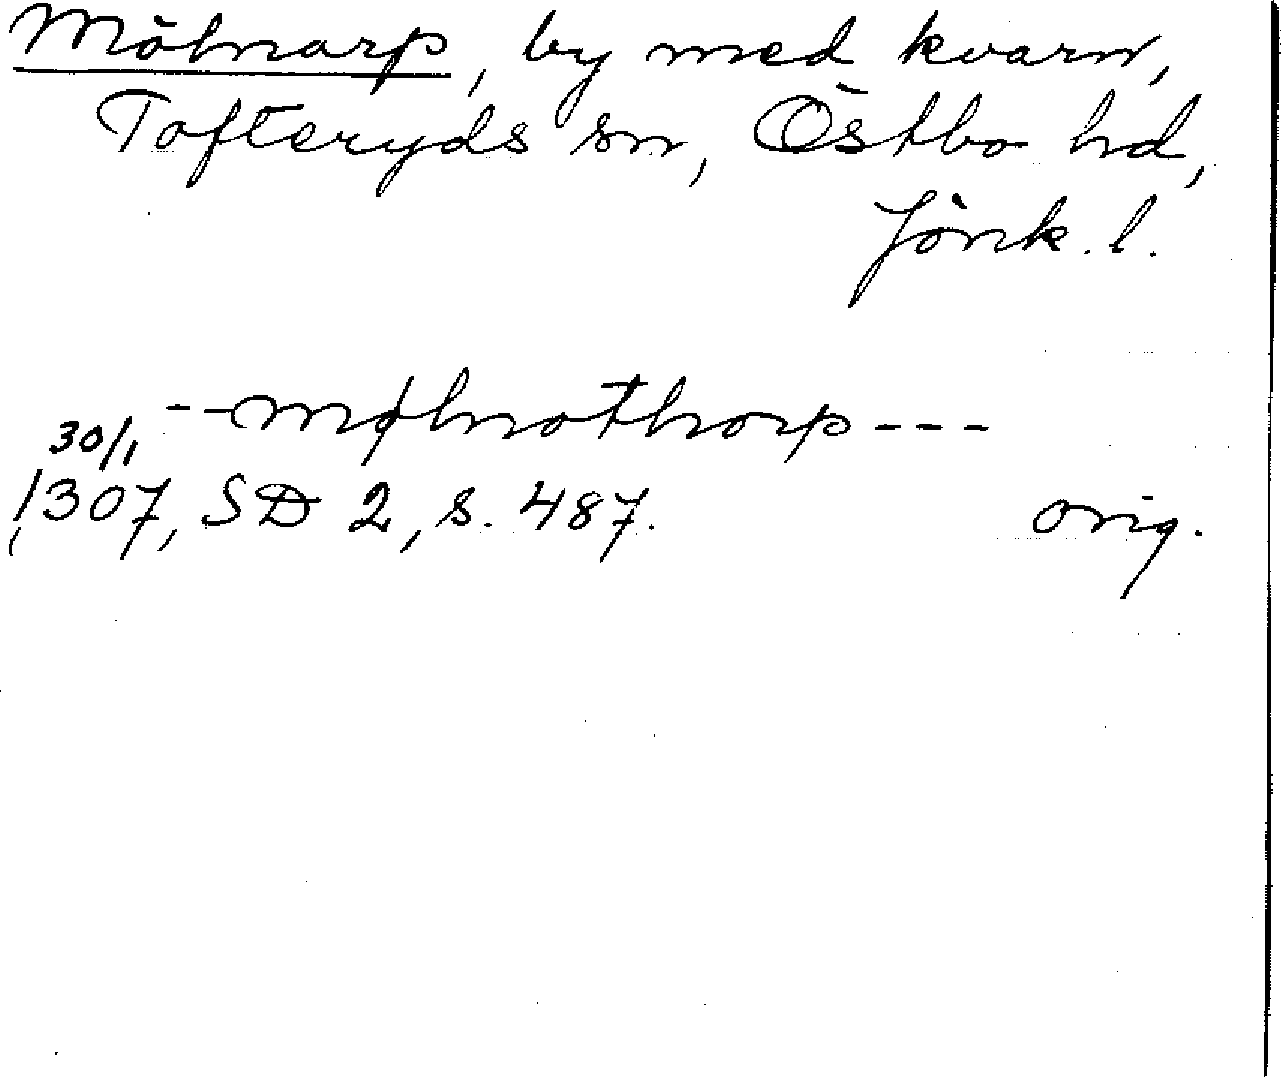 Mölnarp, by med kvarn,
Tofteryds sn, Östbo hd,
Jönk. l.
--mølnathorp---
30/1
1307, SD 2, s. 487. orig.